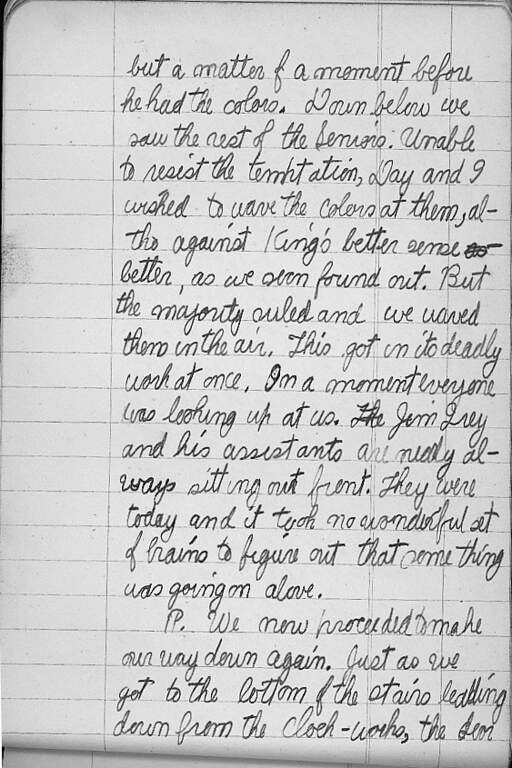 but a matter of a moment before
he had the colors. Down below we
saw the rest of the Seniors. Unable
to resist the temptation, Day and I
wished to wave the colors at them, al-
tho against King's better sense
better, as we soon found out. But
the majority ruled and we waved
them in the air. This got in its deadly
work at once. In a moment everyone
was looking up at us. The Jim Grey
and his assistants are nearly al-
ways sitting out front. They were
today and it took no wonderful set
of brains to figure out that something
was going on above.
P. We now proceeded to make
our way down again. Just as we
got to the bottom of the stairs leadding
down from the clock-works, the door